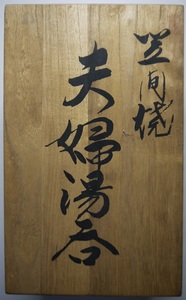 笠間焼
夫婦湯呑